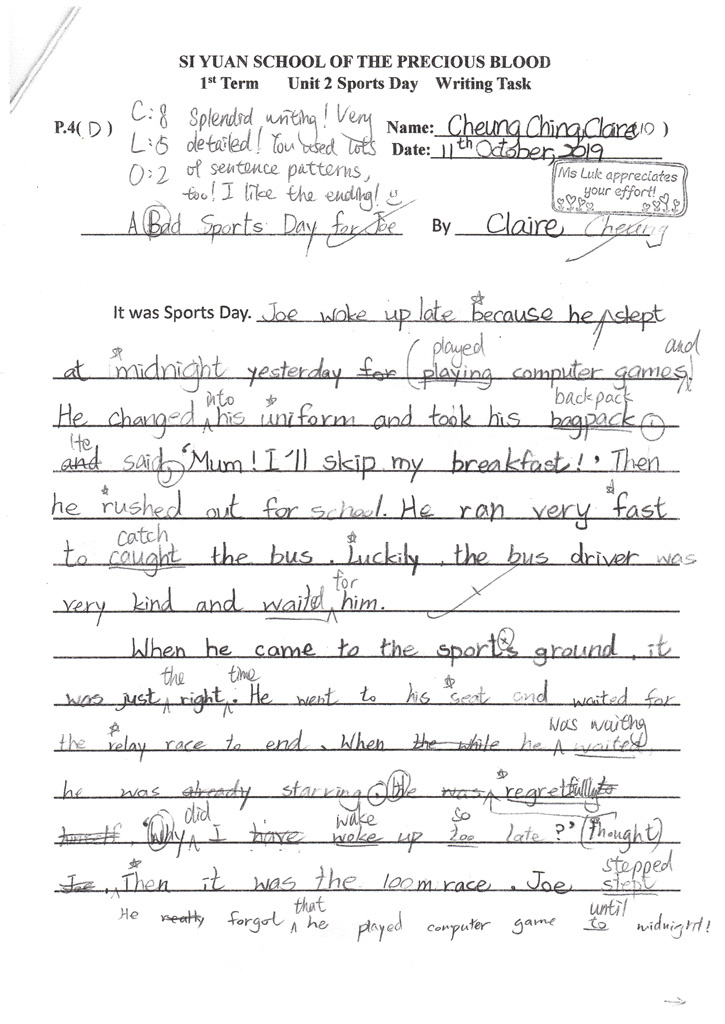 SI YUAN SCHOOL OF THE PRECIOUS BLOOD
1st Term Unit 2 Sports Day Writing Task
P.4( D )
C: 8
L: 5
O: 2
Splendid writing! Very
detailed! You used lots
of sentence patterns,
too! I like the ending!
Name: Cheung Ching, Claire (10 )
Date: 11th October, 2019
Ms Luk appreciates
your effort!!
A Bad Sports Day for Joe By Claire Cheung
It was Sports Day. Joe woke up late because he slept
played and
at midnight yesterday for (playing computer games.
into backpack
He changed his uniform and took his bagpack
He
and said, 'Mum! I'll skip my breakfast!' Then
he rushed out for school. He ran very fast
catch
to caught the bus. Luckily, the bus driver was
for
very kind and waited him.
When he came to the sports ground, it
the time
was just right. He went to his seat and waited for
was waiting
the relay race to end. When the while he waited,
he was already starving. He was regretfully to
did wake so
himself, 'Why I have woke up too late?' (thought)
stepped
Joe. Then it was the 100m race. Joe stept
that until
He really forgot he played computer game to midnight!